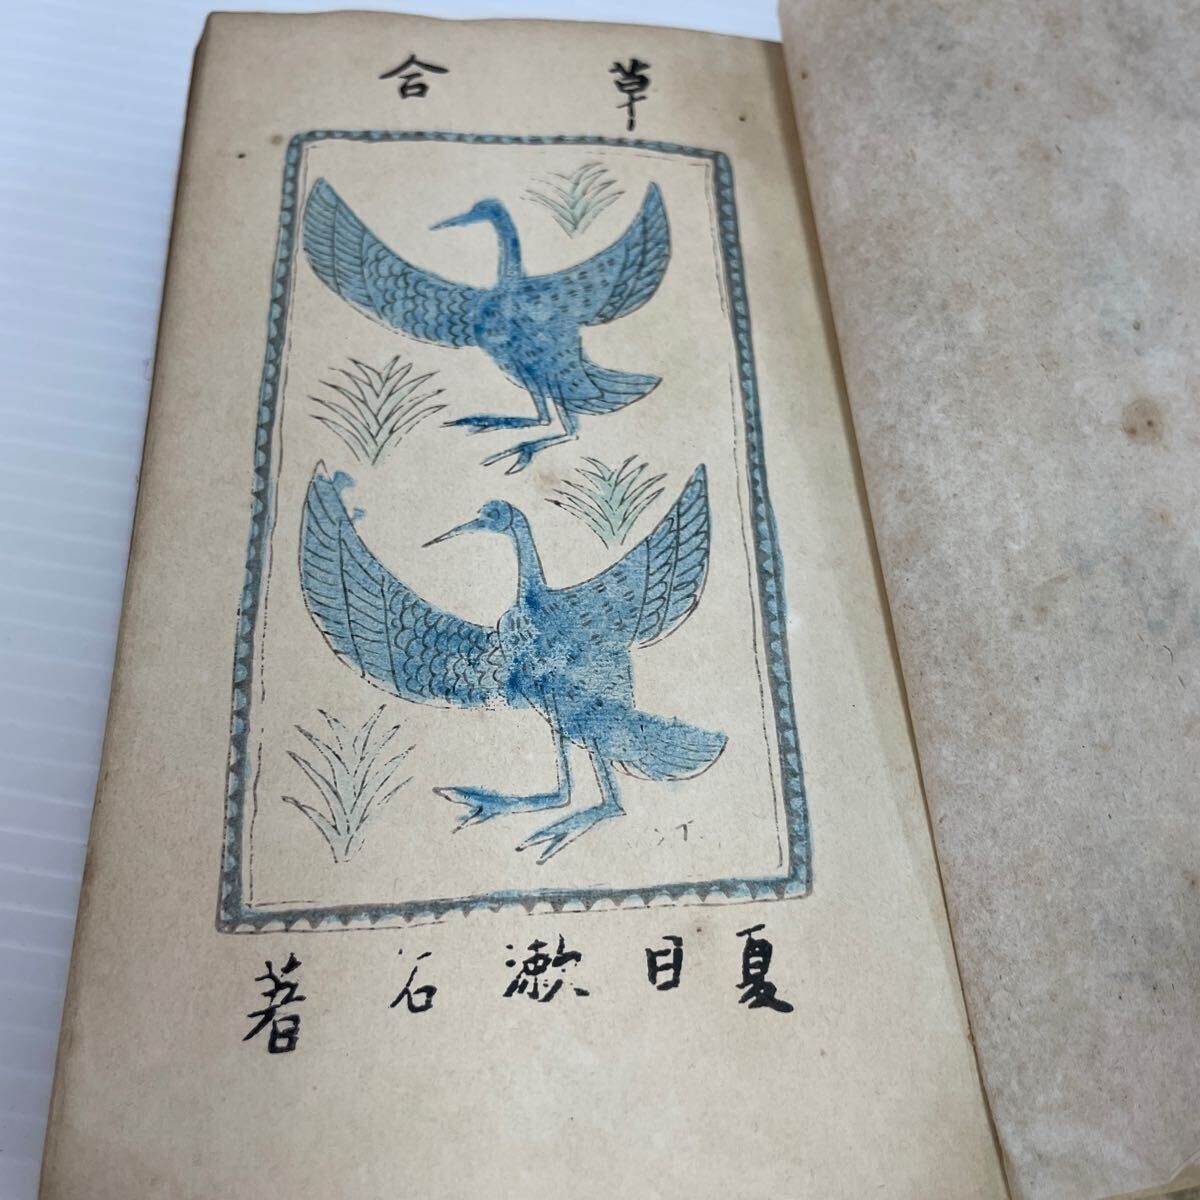 草合
夏目漱石著